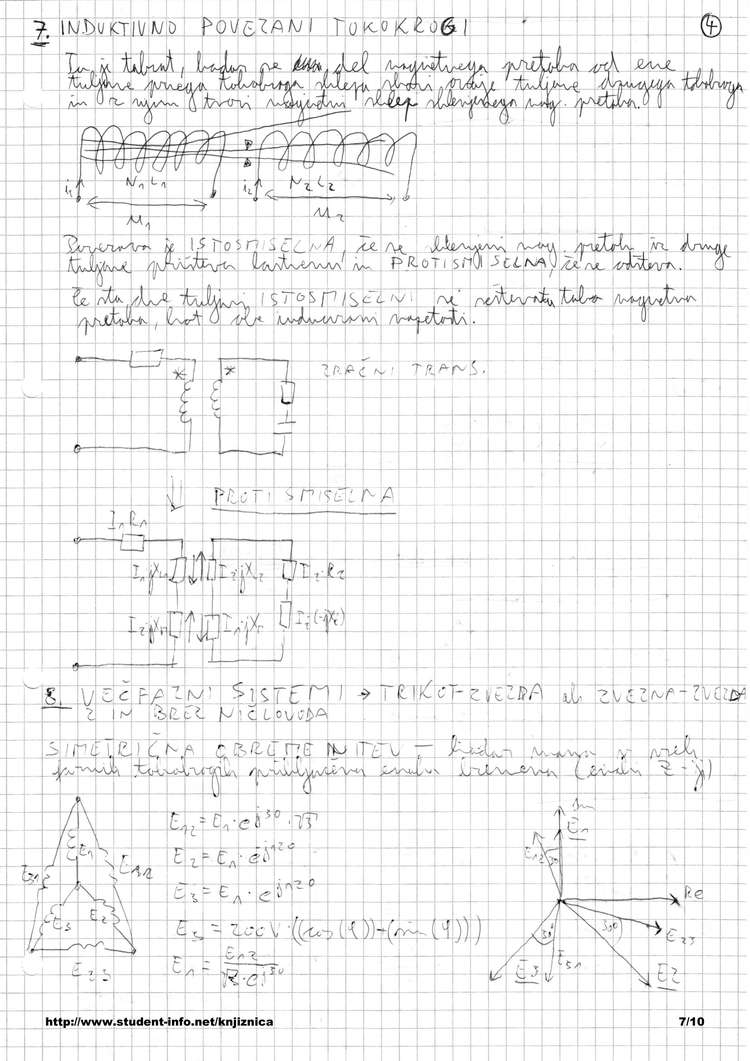 7. INDUKTIVNO POVEZANI TOKOKROGI
4
To je takrat, kadar se del magnetnega pretoka od ene
tuljave prvega tokokroga sklepa skozi ovoje tuljave drugega tokokroga
in z njim tvori magnetni sklep sklenjenega mag. pretoka.
i1 N1 L1 i2 N2 L2
M1 M2
Povezava je ISTOSMISELNA, če se sklenjeni mag. pretok iz druge
tuljave prišteva lastnemu in PROTISMISELNA, če se odšteva.
Če sta dve tuljavi ISTOSMISELNI se seštevata taka magnetna
pretoka, kot obe inducirani napetosti.
* * ZRAČNI TRANS.
PROTISMISELNA
I1R1
I2·jX2 I2·R2
8. VEČFAZNI SISTEMI → TRIKOT-ZVEZDA ali ZVEZNA-ZVEZDA
Z IN BREZ NIČLOVODA
SIMETRIČNA OBREMENITEV – kadar imamo v vseh
faznih tokokrogih priključena enaka bremena (enaki Z-ji)
E12 = E1 · e^j30 · √3
E2 = E1 · e^j120
E3 = E1 · e^j120
E3 = 200V · ((cos(φ))+(sin(φ)))
E1 = E12 / √3 · e^j30
E1
E3
E2
E23
Im
E1
E12
30
Re
E23
30
E3
E31
E2
http://www.student-info.net/knjiznica
7/10